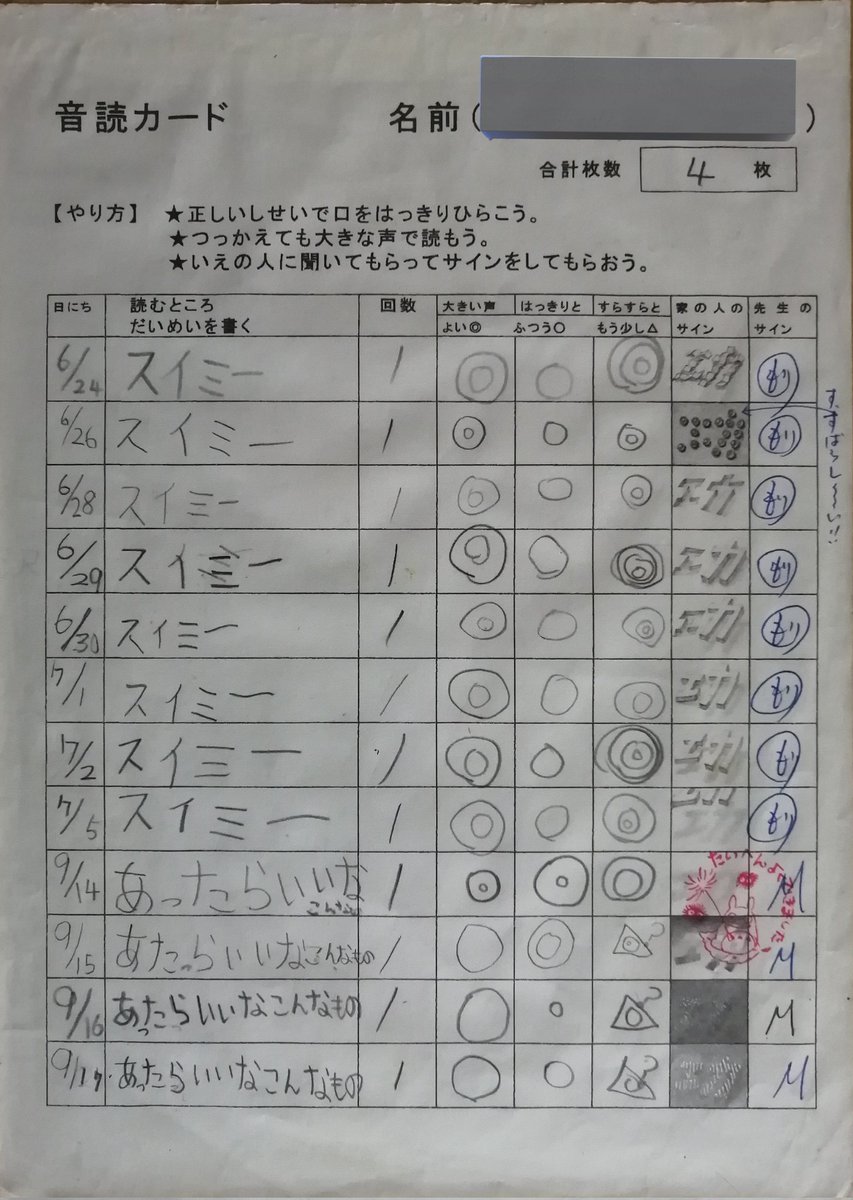 音読カード 名前( )
合計枚数 4 枚
【やり方】 ★正しいしせいで口をはっきりひらこう。
★つっかえても大きな声で読もう。
★いえの人に聞いてもらってサインをしてもらおう。
日にち 読むところ だいめいを書く 回数 大きい声 はっきりと すらすらと 家の人のサイン 先生のサイン
よい◎ ふつう○ もう少し△
6/24 スイミー 1 ◎ ○ ◎ エガ もり
6/26 スイミー 1 ◎ ○ ◎ もり
す、すばらし〜〜い!!
6/28 スイミー 1 ◎ ○ ◎ エガ もり
6/29 スイミー 1 ◎ ○ ◎ エガ もり
6/30 スイミー 1 ◎ ○ ◎ エガ もり
7/1 スイミー 1 ◎ ○ ◎ エガ もり
7/2 スイミー 1 ◎ ○ ◎ エガ もり
7/5 スイミー 1 ◎ ○ ◎ もり
9/14 あったらいいなこんなもの 1 ◎ ◎ ◎ M
たいへんよくできました
9/15 あたっらいいなこんなもの 1 ○ ◎ △ M
9/16 あったらいいなこんなもの 1 ○ ○ △ M
9/17 あったらいいなこんなもの 1 ○ ○ △ M